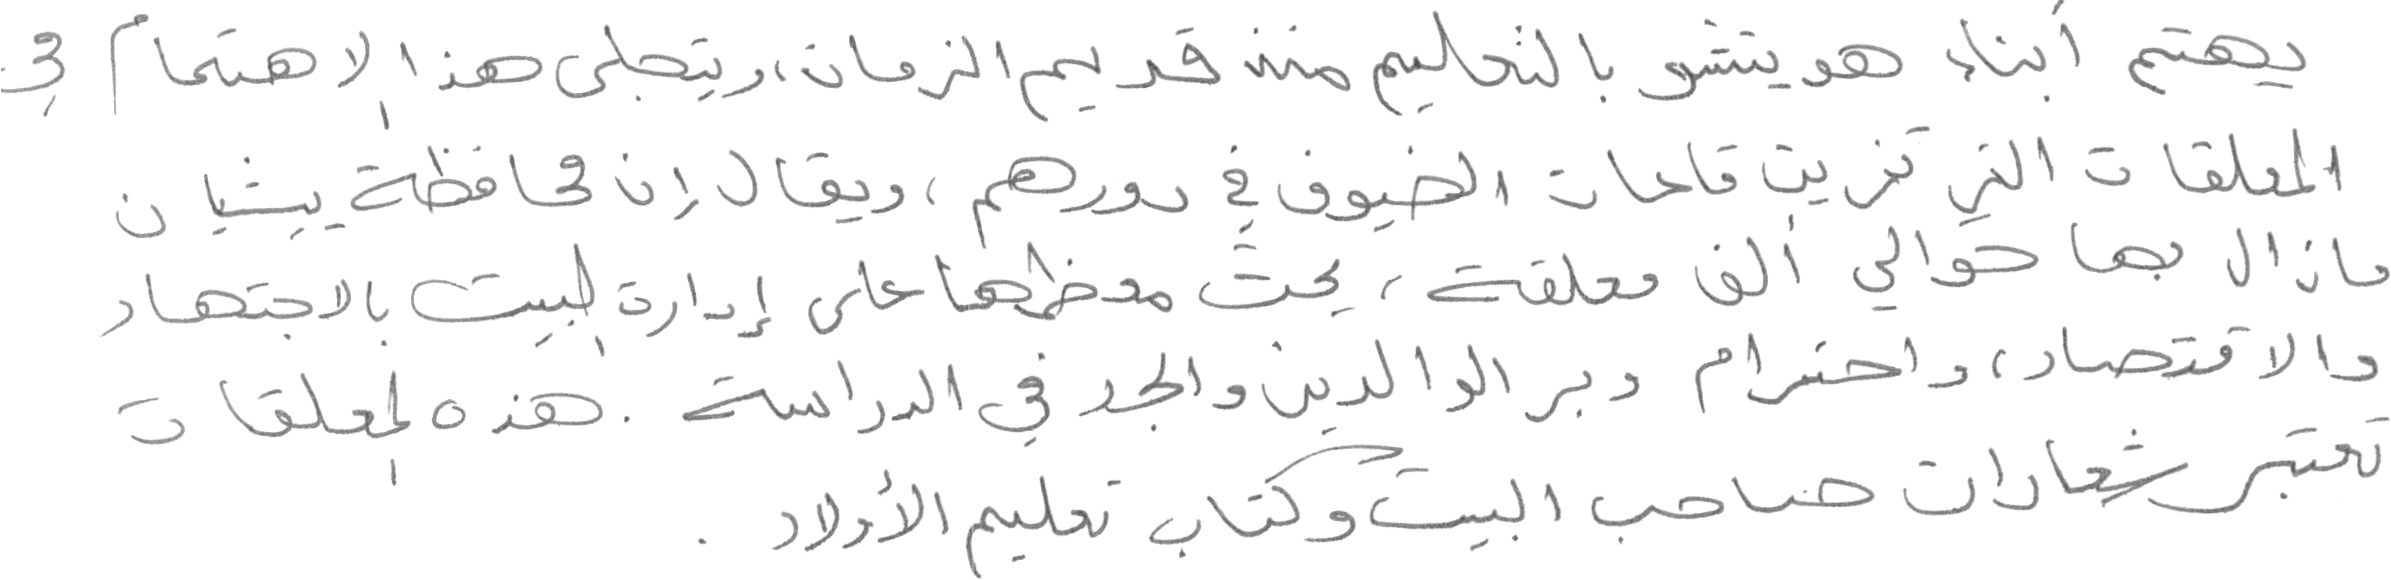 يهتم أبناء هويتشو بالتعليم منذ قديم الزمان، ويتجلى هذا الاهتمام في
المعلقات التي تزين قاعات الضيوف في دورهم، ويقال إن محافظة ييشيان
مازال بها حوالي ألف معلقة، يحث معظمها على إدارة البيت بالاجتهاد
والاقتصاد، واحترام وبر الوالدين والجد في الدراسة. هذه المعلقات
تعتبر شعارات صاحب البيت وكتاب تعليم الأولاد.